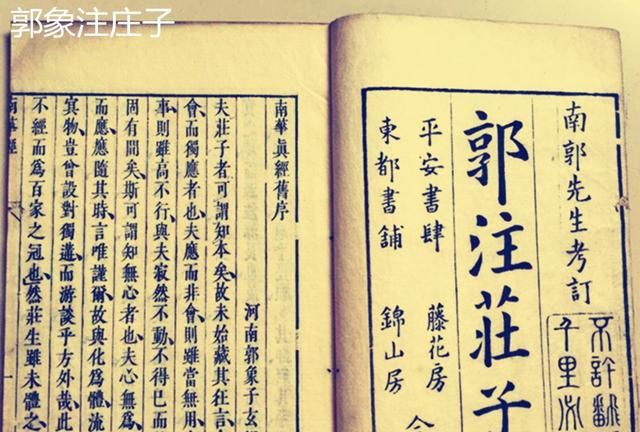 郭象注庄子
南郭先生考訂
不許翻
千里必
郭注莊子
平安書肆 藤花房
東都書舗 錦山房
南華真經舊序
河南郭象子玄
夫莊子者可謂知本矣故未始藏其狂言
會而獨應者也夫應而非會則雖當無用
事則雖高不行與夫寂然不動不得已而
固有間矣斯可謂知無心者也夫心無爲
而應應隨其時言唯謹爾故與化爲體流
冥物豈曾設對獨遘而游談乎方外哉此
不經而爲百家之冠也然莊生雖未體之
南華經